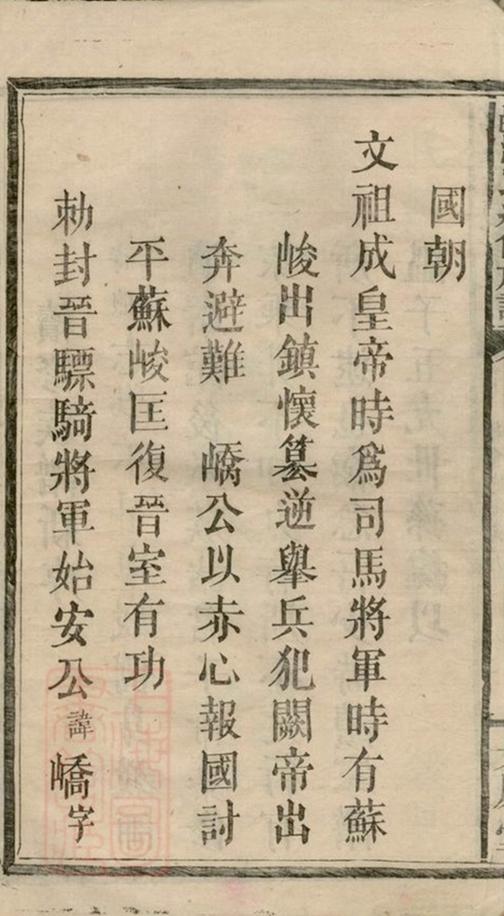 國朝
文祖成皇帝時爲司馬將軍時有蘇
峻出鎮懷篡逆舉兵犯闕帝出
奔避難 嶠公以赤心報國討
平蘇峻匡復晉室有功
勅封晉驃騎將軍始安公諱嶠字